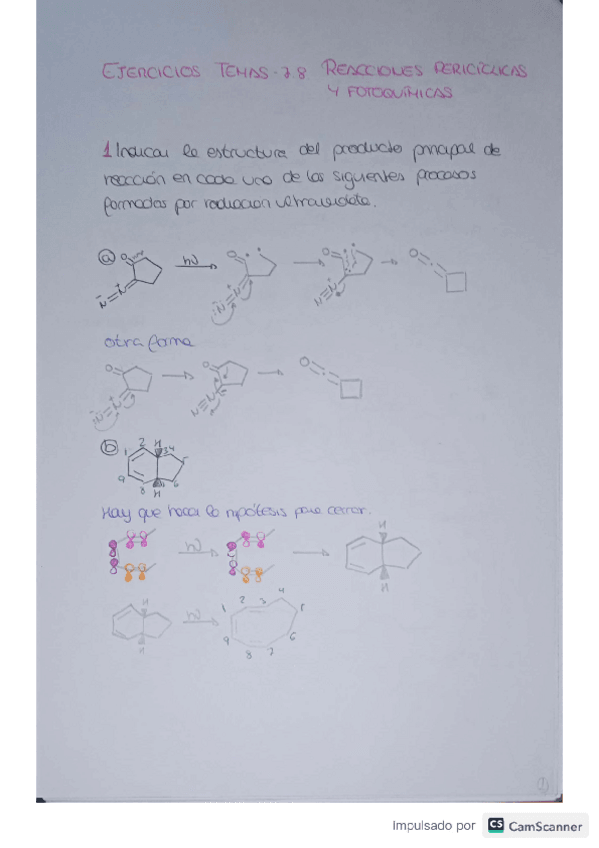 EJERCICIOS TEMAS 7.8 REACCIONES PERICÍCLICAS
Y FOTOQUÍMICAS
1. Indicar la estructura del producto principal de
reacción en cada uno de los siguientes procesos
formados por radiación ultravioleta.
a
hν
otra forma
b
Hay que hacer la hipótesis para cerrar.
hν
hν
1
Impulsado por CS CamScanner